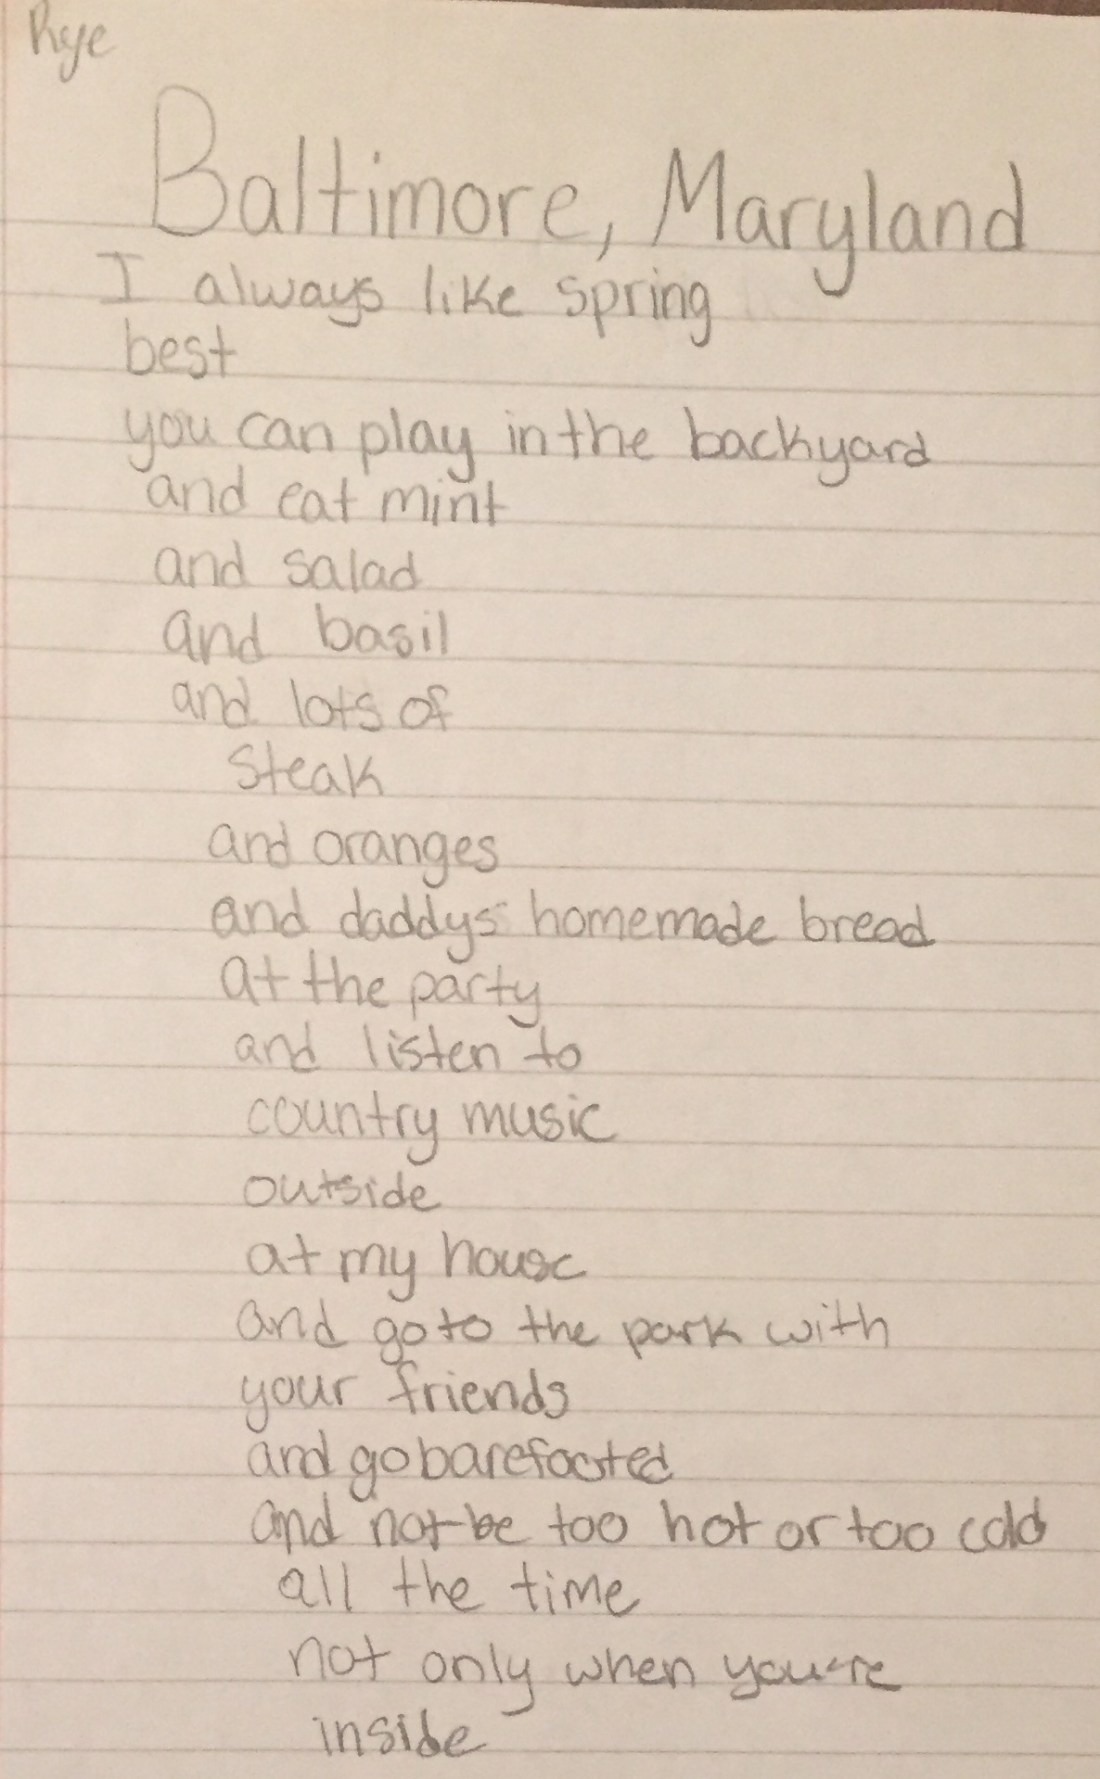 Rye
Baltimore, Maryland
I always like spring
best
you can play in the backyard
and eat mint
and salad
and basil
and lots of
steak
and oranges
and daddys homemade bread
at the party
and listen to
country music
outside
at my house
and go to the park with
your friends
and go barefooted
and not be too hot or too cold
all the time
not only when you're
inside